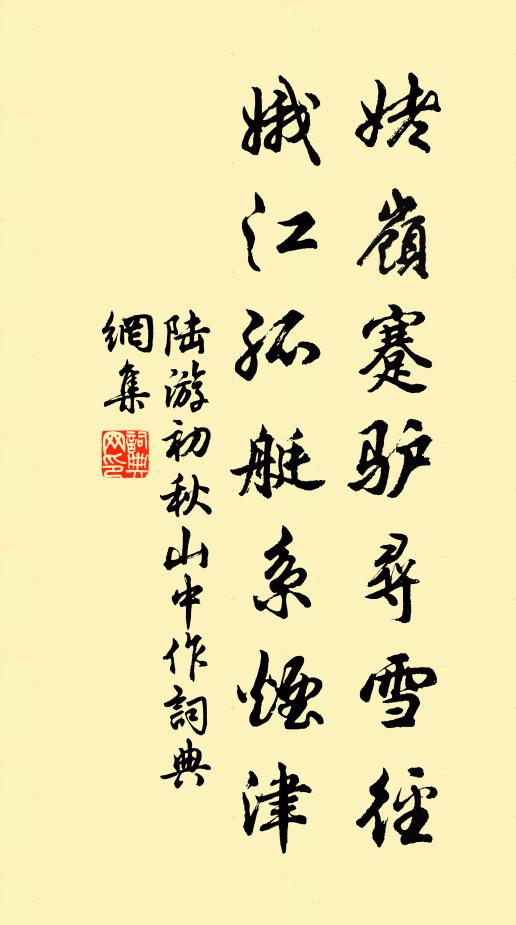 姥嶺蹇驴尋雪徑
娥江孤艇系煙津
陆游初秋山中作詞典
網集
詞典網印